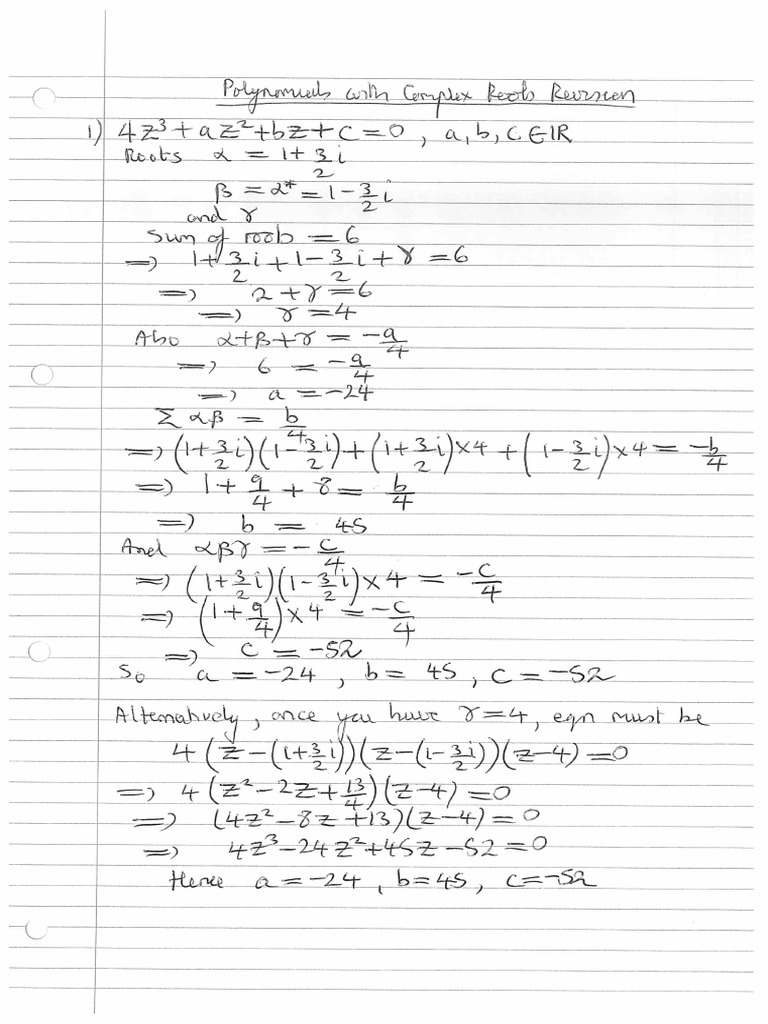 Polynomials with Complex Roots Revision
1) 4z³ + az² + bz + c = 0 , a, b, c ∈ ℝ
Roots α = 1 + 3/2 i
β = α* = 1 - 3/2 i
and γ
Sum of roots = 6
=> 1 + 3/2 i + 1 - 3/2 i + γ = 6
=> 2 + γ = 6
=> γ = 4
Also α + β + γ = -a/4
=> 6 = -a/4
=> a = -24
Σ αβ = b/4
=> (1 + 3/2 i)(1 - 3/2 i) + (1 + 3/2 i) × 4 + (1 - 3/2 i) × 4 = -b/4
=> 1 + 9/4 + 8 = b/4
=> b = 45
And αβγ = -c/4
=> (1 + 3/2 i)(1 - 3/2 i) × 4 = -c/4
=> (1 + 9/4) × 4 = -c/4
=> c = -52
So a = -24 , b = 45 , c = -52
Alternatively, once you have γ = 4, eqn must be
4 (z - (1 + 3/2 i))(z - (1 - 3/2 i))(z - 4) = 0
=> 4 (z² - 2z + 13/4)(z - 4) = 0
=> (4z² - 8z + 13)(z - 4) = 0
=> 4z³ - 24z² + 45z - 52 = 0
Hence a = -24 , b = 45 , c = -52